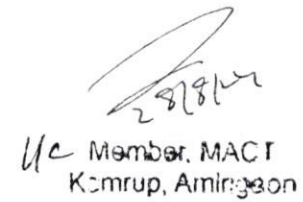 28/8/24
I/C Member, MACT
Kamrup, Amingaon